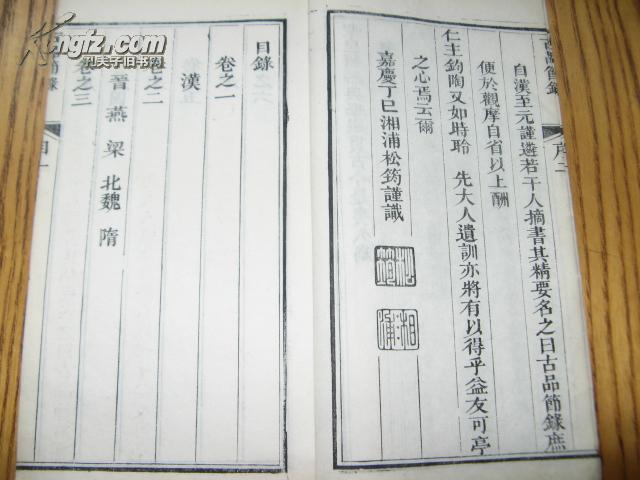 古品節錄
序二
自漢至元謹遴若干人摘書其精要名之曰古品節錄庶
便於觀摩自省以上酬
仁主鈞陶又如時聆 先大人遺訓亦將有以得乎益友可亭
之心焉云爾
嘉慶丁巳湘浦松筠謹識
松筠
湘浦
目錄
卷之一
漢
卷之二
晉 燕 梁 北魏 隋
卷之三
古品節錄
目一
kongfz.com
孔夫子旧书网